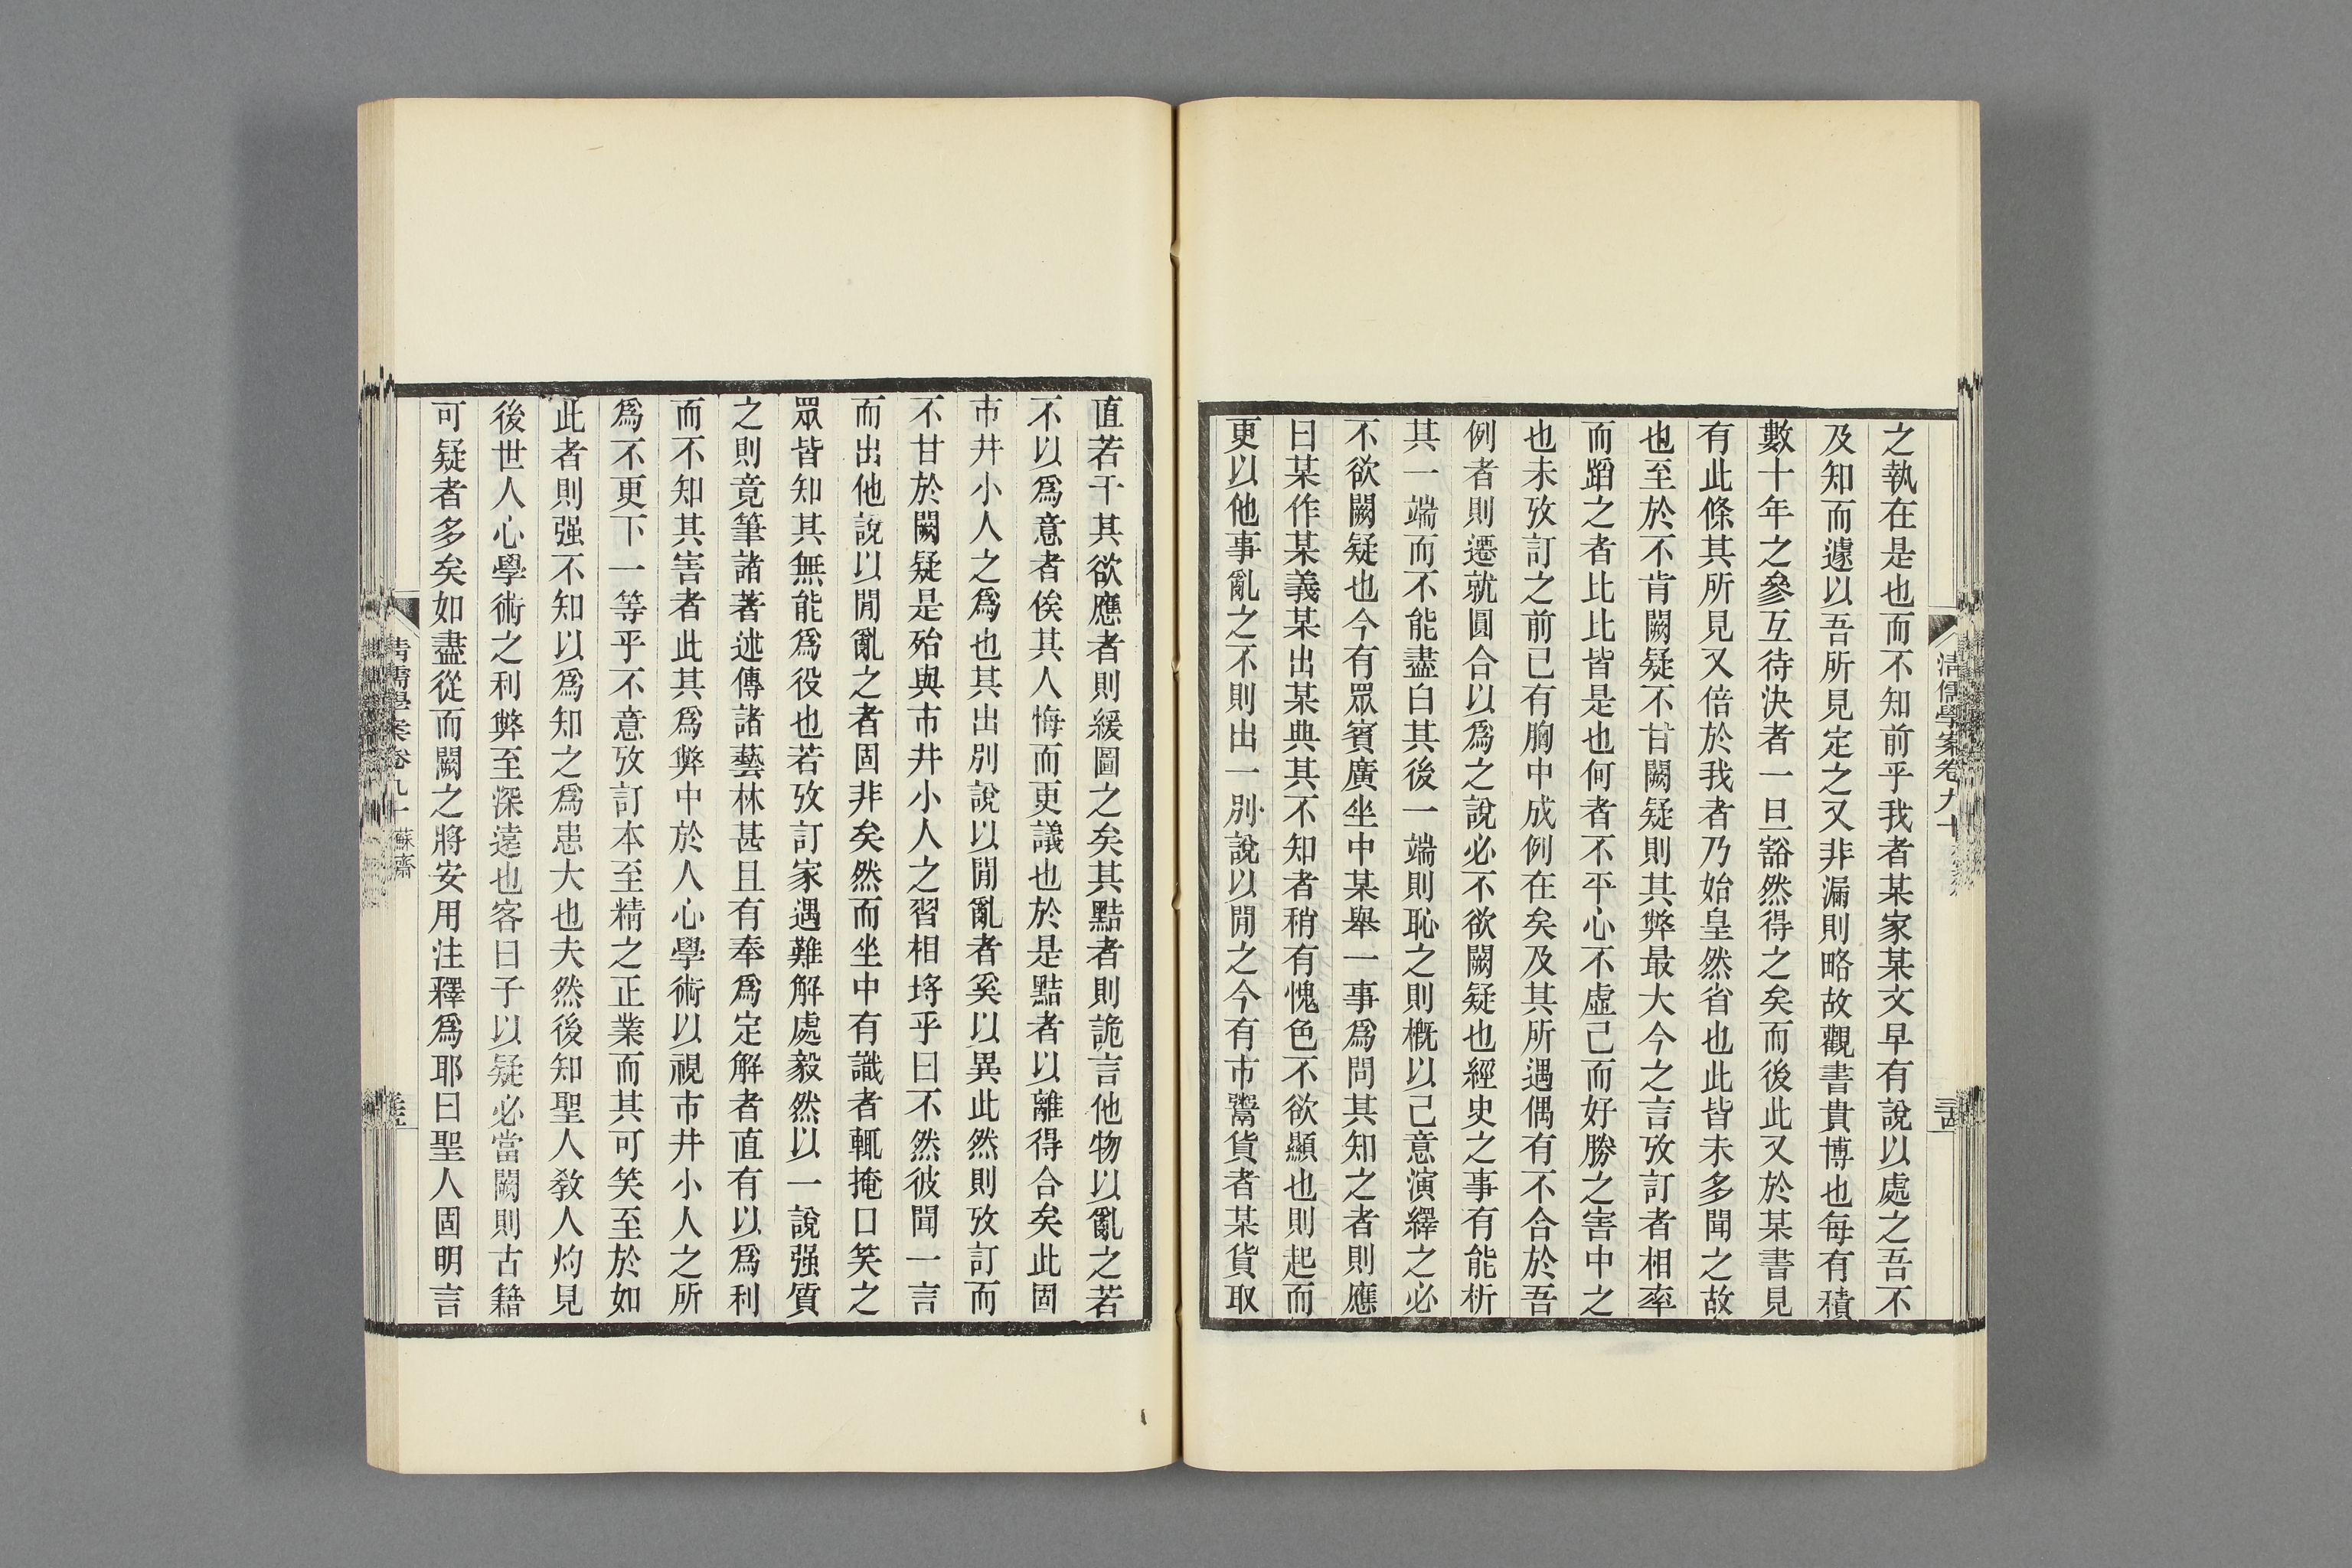 清儒學案卷九十
之執在是也而不知前乎我者某家某文早有說以處之吾不
及知而遽以吾所見定之又非漏則略故觀書貴博也每有積
數十年之參互待決者一旦豁然得之矣而後此又於某書見
有此條其所見又倍於我者乃始皇然省也此皆未多聞之故
也至於不肯闕疑不甘闕疑則其弊最大今之言攷訂者相率
而蹈之者比比皆是也何者不平心不虛己而好勝之害中之
也未攷訂之前已有胸中成例在矣及其所遇偶有不合於吾
例者則遷就圓合以為之說必不欲闕疑也經史之事有能析
其一端而不能盡白其後一端則恥之則概以己意演繹之必
不欲闕疑也今有眾賓廣坐中某舉一事爲問其知之者則應
曰某作某義某出某典其不知者稍有愧色不欲顯也則起而
更以他事亂之不則出一別說以閒之今有市鬻貨者某貨取
直若干其欲應者則緩圖之矣其黠者則詭言他物以亂之若
不以爲意者俟其人悔而更議也於是黠者以離得合矣此固
市井小人之爲也其出別說以閒亂者奚以異此然則攷訂而
不甘於闕疑是殆與市井小人之習相埒乎曰不然彼聞一言
而出他說以閒亂之者固非矣然而坐中有識者輒掩口笑之
眾皆知其無能爲役也若攷訂家遇難解處毅然以一說强質
之則竟筆諸著述傳諸藝林甚且有奉爲定解者直有以爲利
而不知其害者此其爲弊中於人心學術以視市井小人之所
爲不更下一等乎不意攷訂本至精之正業而其可笑至於如
此者則强不知以爲知之爲患大也夫然後知聖人敎人灼見
後世人心學術之利弊至深遠也客曰子以疑必當闕則古籍
可疑者多矣如盡從而闕之將安用注釋爲耶曰聖人固明言
清儒學案卷九十 蘇齋